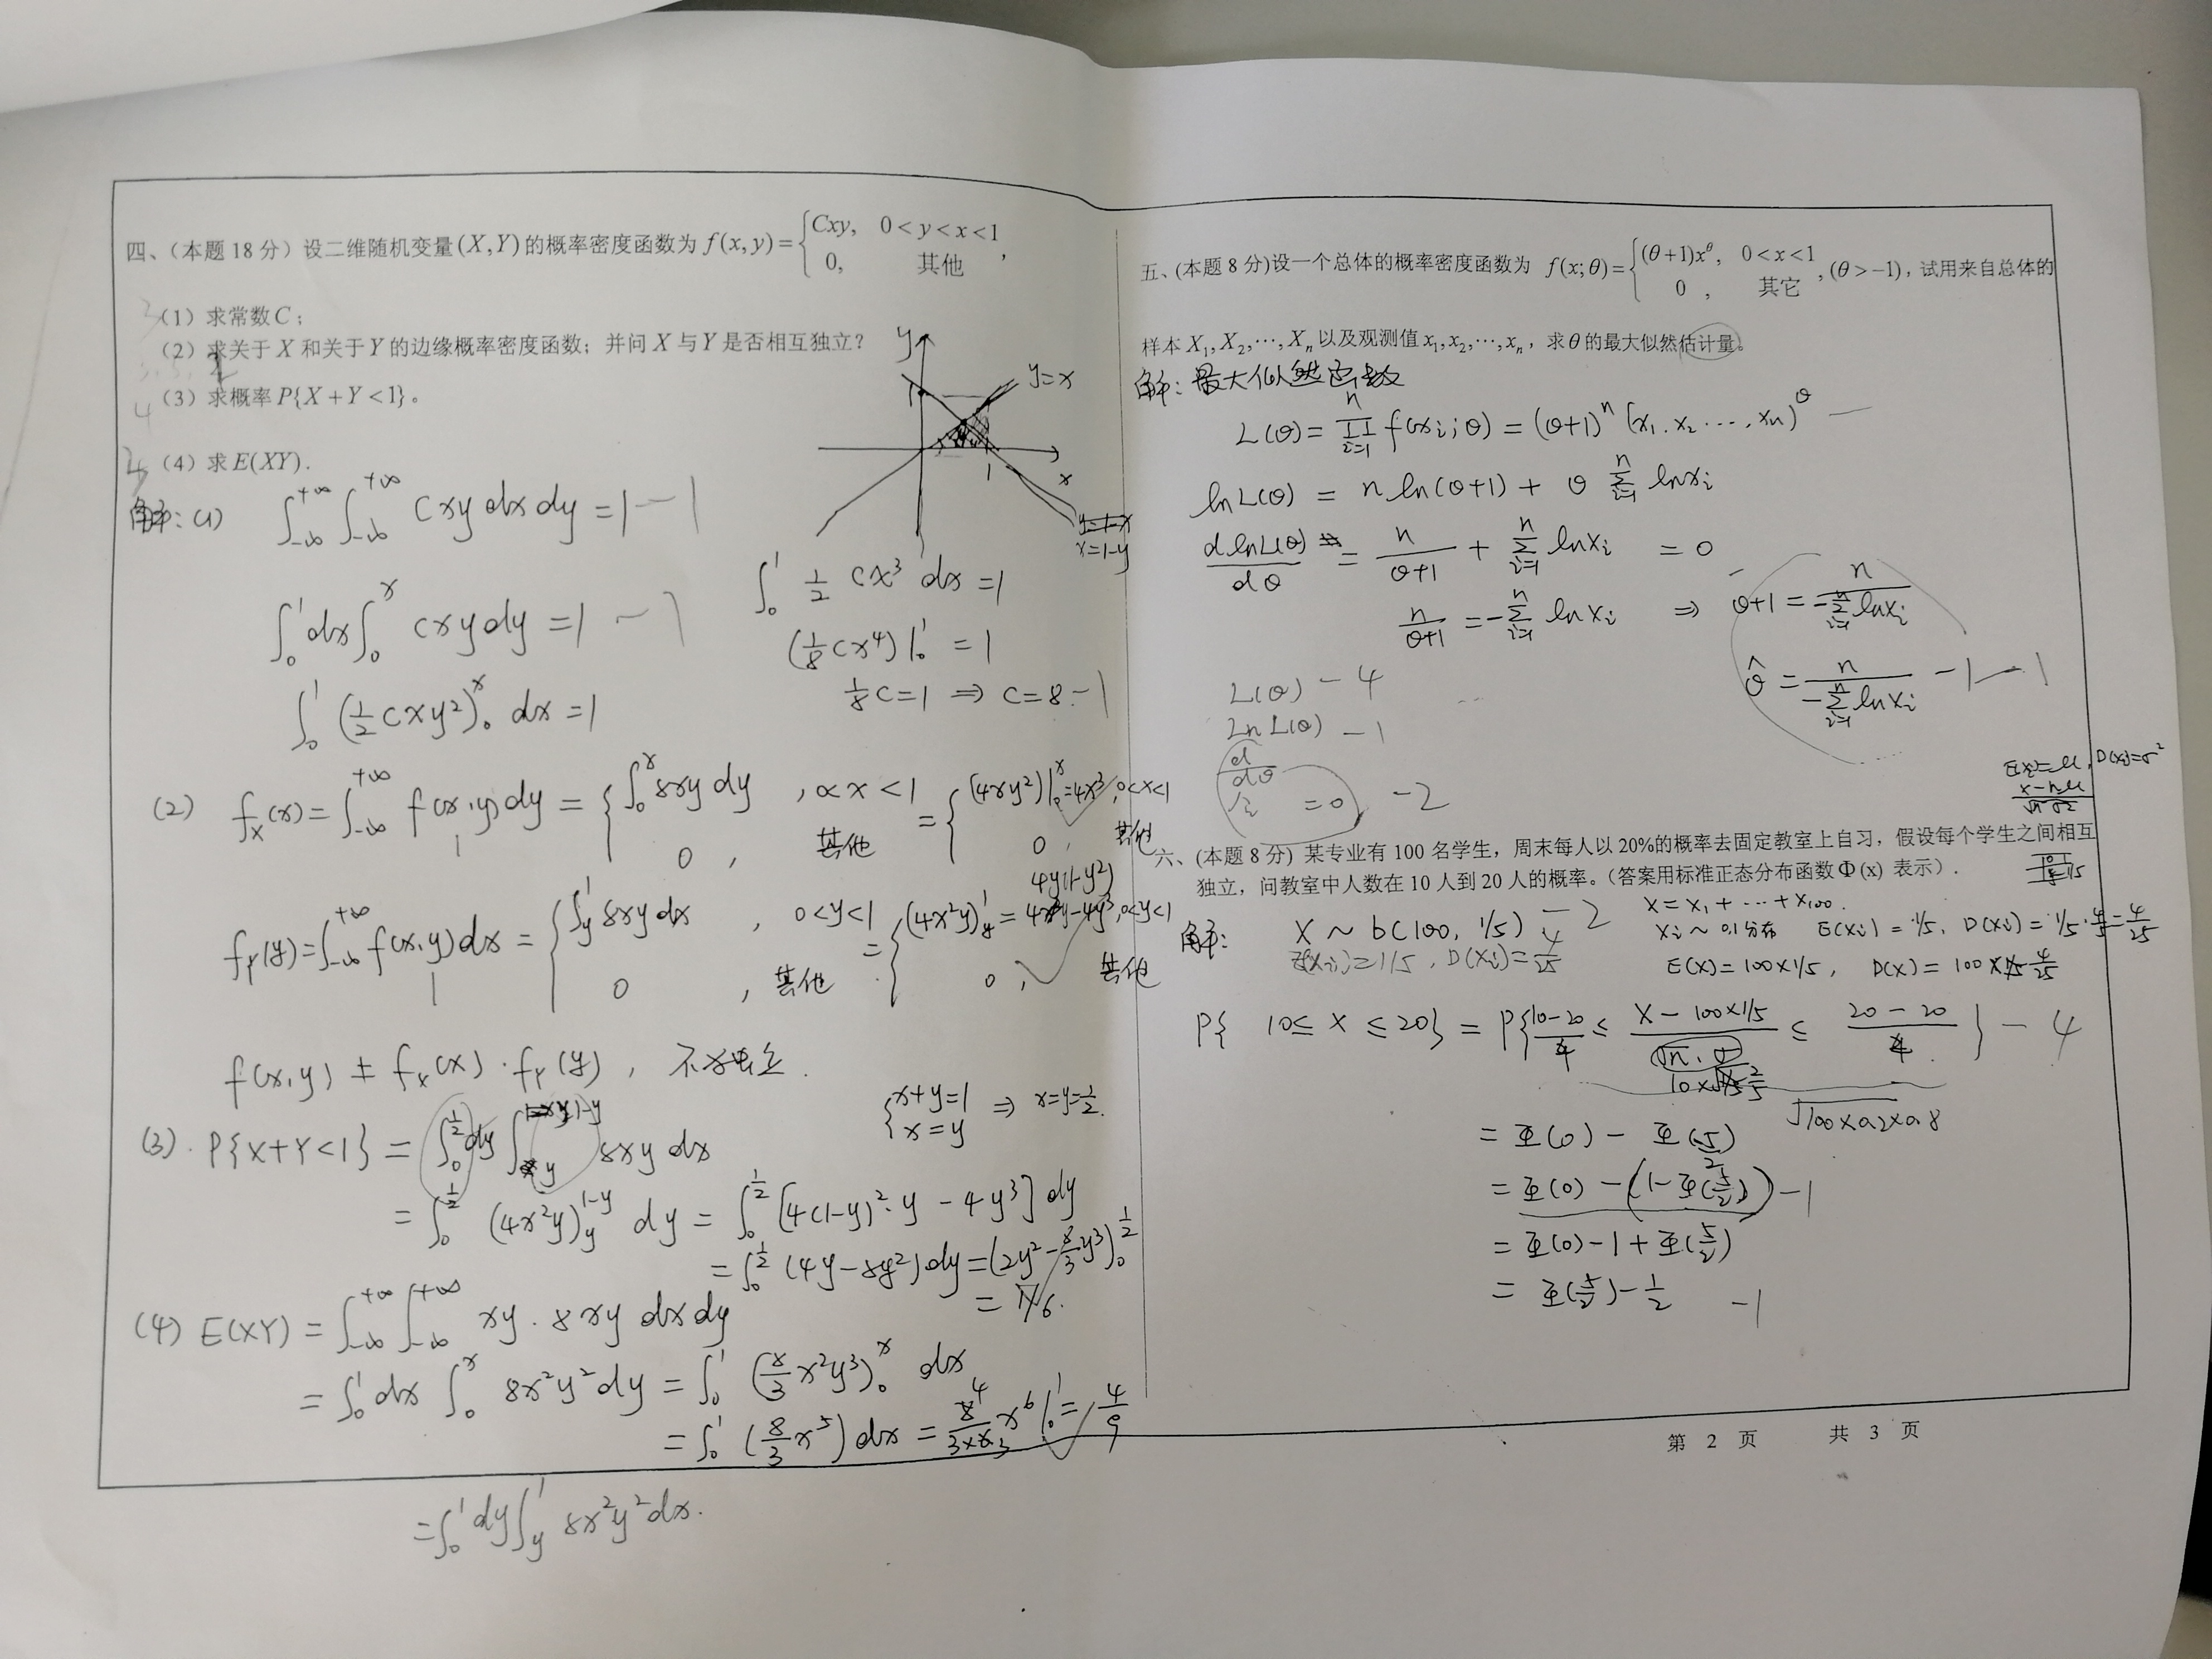 四、（本题 18 分）设二维随机变量 (X,Y) 的概率密度函数为 f(x,y)={Cxy, 0<y<x<1
0, 其他 ,
（1）求常数 C；
（2）求关于 X 和关于 Y 的边缘概率密度函数；并问 X 与 Y 是否相互独立？
（3）求概率 P{X+Y<1}。
（4）求 E(XY).
y
1
y=x
1
x
x=1-y
解：(1) ∫_{-∞}^{+∞}∫_{-∞}^{+∞} Cxy dxdy =1 —1
∫_0^1 dx∫_0^x cxy dy =1 —1
∫_0^1 (1/2 cxy²)_0^x dx =1
∫_0^1 1/2 cx³ dx =1
(1/8 cx⁴)|_0^1 = 1
1/8 c=1 ⇒ c=8 —1
(2) f_X(x)=∫_{-∞}^{+∞} f(x,y)dy = {∫_0^x 8xy dy , 0<x<1 = {(4xy²)|_0^x=4x³, 0<x<1
0 , 其他 0, 其他
4y(1-y²)
f_Y(y)=∫_{-∞}^{+∞} f(x,y)dx = {∫_y^1 8xy dx , 0<y<1 = {(4x²y)_y^1 = 4y-4y³, 0<y<1
0 , 其他 0, 其他
f(x,y) ≠ f_X(x)·f_Y(y)，不独立.
{x+y=1
x=y ⇒ x=y=1/2.
(3). P{X+Y<1} = ∫_0^{1/2} dy ∫_y^{1-y} 8xy dx
= ∫_0^{1/2} (4x²y)_y^{1-y} dy = ∫_0^{1/2} [4(1-y)²·y - 4y³] dy
= ∫_0^{1/2} (4y-8y²)dy=(2y²-8/3y³)_0^{1/2}
= 1/6.
(4) E(XY) = ∫_{-∞}^{+∞}∫_{-∞}^{+∞} xy·8xy dxdy
= ∫_0^1 dx ∫_0^x 8x²y² dy = ∫_0^1 (8/3 x²y³)_0^x dx
= ∫_0^1 (8/3 x⁵) dx = 4/(3×3) x⁶|_0^1 = 4/9
=∫_0^1 dy∫_y^1 8x²y²dx.
五、(本题 8 分)设一个总体的概率密度函数为 f(x;θ)={(θ+1)x^θ, 0<x<1
0 , 其它 , (θ>-1)，试用来自总体的
样本 X₁,X₂,⋯,Xₙ 以及观测值 x₁,x₂,⋯,xₙ，求 θ 的最大似然估计量。
解：最大似然函数
L(θ)= ∏_{i=1}^n f(xi;θ) = (θ+1)^n (x₁.x₂.⋯.xn)^θ —
lnL(θ) = n ln(θ+1) + θ Σ_{i=1}^n lnxi
dlnL(θ)/dθ = n/(θ+1) + Σ_{i=1}^n lnXi = 0
n/(θ+1) = -Σ_{i=1}^n lnXi ⇒ θ+1 = n/(-Σ_{i=1}^n lnXi)
θ̂ = n/(-Σ_{i=1}^n lnXi) -1 —1
L(θ) —4
LnL(θ) —1
d/dθ
=0 —2
E(Xi)=μ, D(Xi)=σ²
六、(本题 8 分) 某专业有 100 名学生，周末每人以 20%的概率去固定教室上自习，假设每个学生之间相互
独立，问教室中人数在 10 人到 20 人的概率。（答案用标准正态分布函数 Φ(x) 表示）.
解： X ~ b(100, 1/5) —2
X=X₁+⋯+X₁₀₀.
Xi ~ 0,1分布 E(Xi)=1/5, D(Xi)=1/5·4/5=4/25
E(Xi)=1/5, D(Xi)=4/25
E(X)=100×1/5, D(X)=100×4/25
P{ 10≤ X ≤20} = P{(10-20)/4 ≤ (X-100×1/5)/(√n·σ) ≤ (20-20)/4 } —4
10×2/5
√(100×0.2×0.8)
= Φ(0) - Φ(-5/2)
= Φ(0) -(1-Φ(5/2)) —1
= Φ(0)-1+Φ(5/2)
= Φ(5/2)-1/2 —1
第 2 页 共 3 页